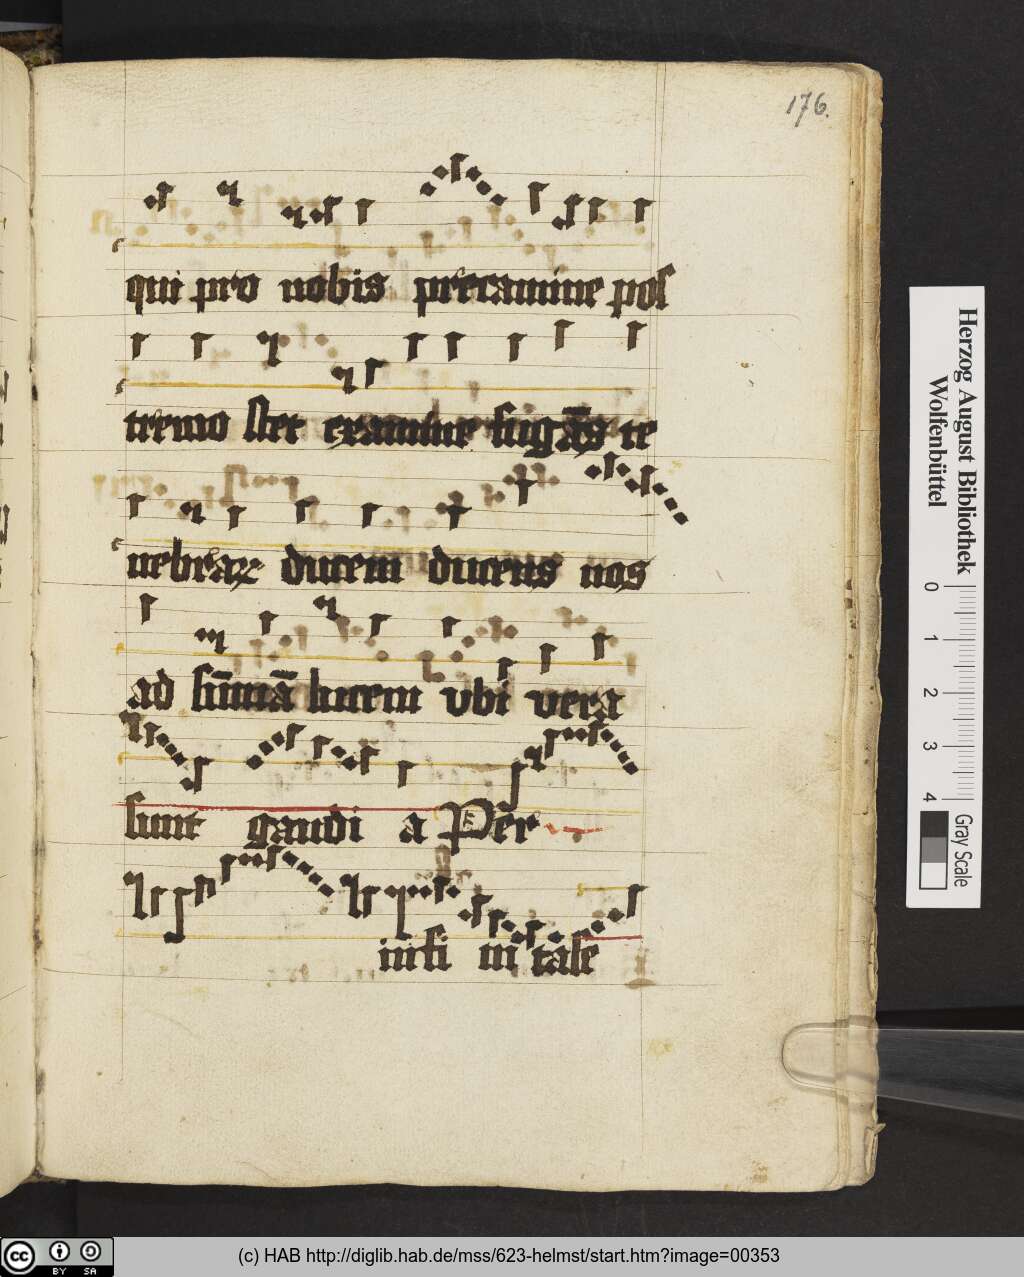 176.
qui pro nobis precamine pos
tremo stet examine fugās te
nebraꝝ ducem ducens nos
ad sūmā lucem vbi vera
sunt gaudi a Per
infi ni tase
Herzog August Bibliothek
Wolfenbüttel
0 1 2 3 4
Gray Scale
cc BY SA
(c) HAB http://diglib.hab.de/mss/623-helmst/start.htm?image=00353